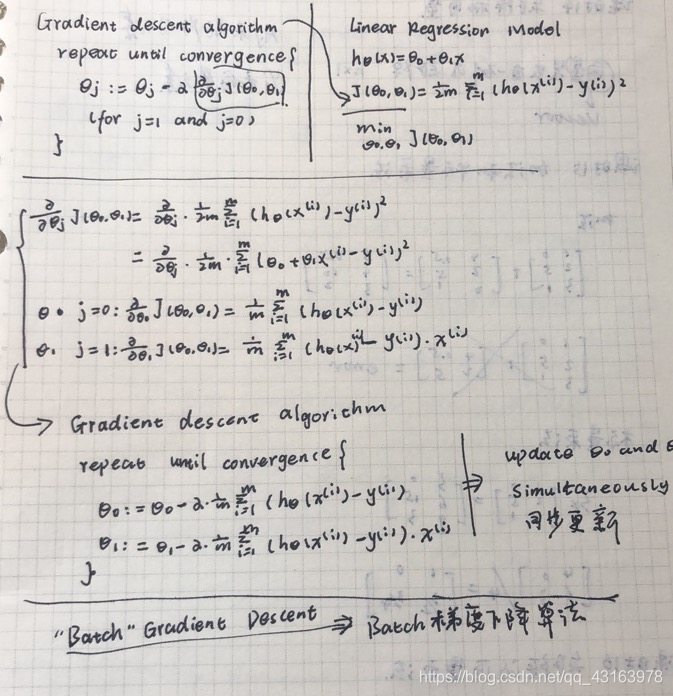 Gradient descent algorithm
repeat until convergence {
θj := θj - α ∂/∂θj J(θ0, θ1)
(for j=1 and j=0)
}
Linear Regression Model
hθ(x) = θ0 + θ1x
J(θ0, θ1) = 1/2m Σ_{i=1}^{m} (hθ(x^(i)) - y^(i))²
min θ0,θ1 J(θ0, θ1)
∂/∂θj J(θ0, θ1) = ∂/∂θj · 1/2m Σ_{i=1}^{m} (hθ(x^(i)) - y^(i))²
= ∂/∂θj · 1/2m · Σ_{i=1}^{m} (θ0 + θ1x^(i) - y^(i))²
θ0 j=0: ∂/∂θ0 J(θ0, θ1) = 1/m Σ_{i=1}^{m} (hθ(x^(i)) - y^(i))
θ1 j=1: ∂/∂θ1 J(θ0, θ1) = 1/m Σ_{i=1}^{m} (hθ(x)^(i) - y^(i)) · x^(i)
Gradient descent algorithm
repeat until convergence {
θ0 := θ0 - α · 1/m Σ_{i=1}^{m} (hθ(x^(i)) - y^(i))
θ1 := θ1 - α · 1/m Σ_{i=1}^{m} (hθ(x^(i)) - y^(i)) · x^(i)
}
⇒ update θ0 and θ
simultaneously
同步更新
"Batch" Gradient Descent ⇒ Batch 梯度下降算法
https://blog.csdn.net/qq_43163978